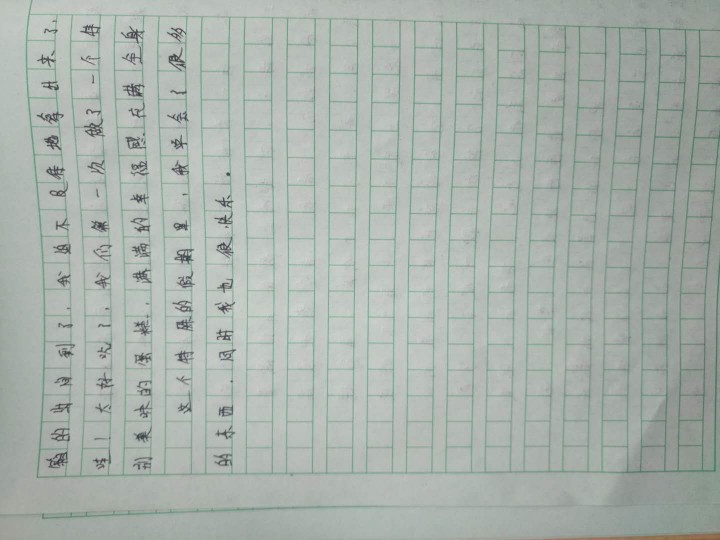 的出日到了，我迫不及待地拿出来了，
哇！太好吃了，我们第一次做了一个特
别美味的蛋糕，满满的幸福感充满全身
这个特殊的假期里，我学会了很多
的东西，同时我也很快乐。